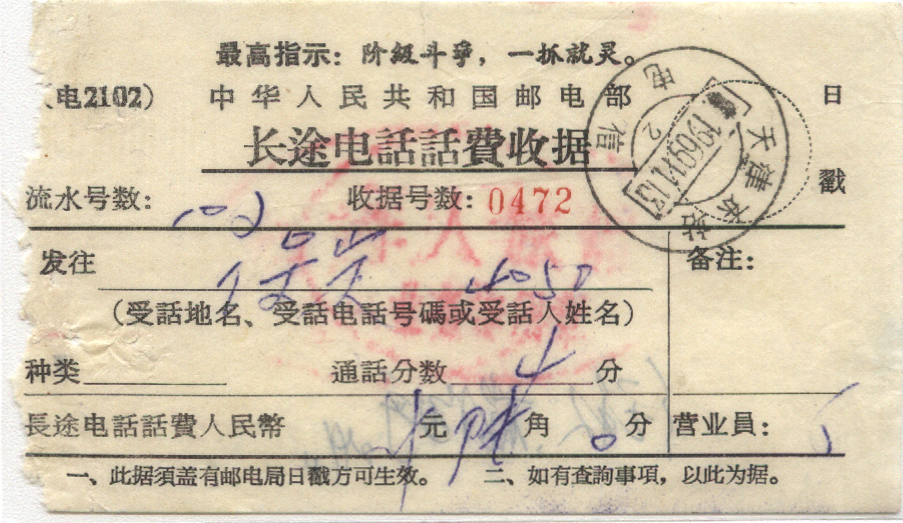 最高指示：阶級斗爭，一抓就灵。
（电2102） 中华人民共和国邮电部 日
长途电話話費收据 戳
流水号数： 收据号数：0472
发往 4050 备注：
（受話地名、受話电話号碼或受話人姓名）
种类 通話分数 分
長途电話話費人民幣 元 角 0 分 营业员：
一、此据須盖有邮电局日戳方可生效。 二、如有查詢事項，以此为据。
电信
2
1969.11.13
天津